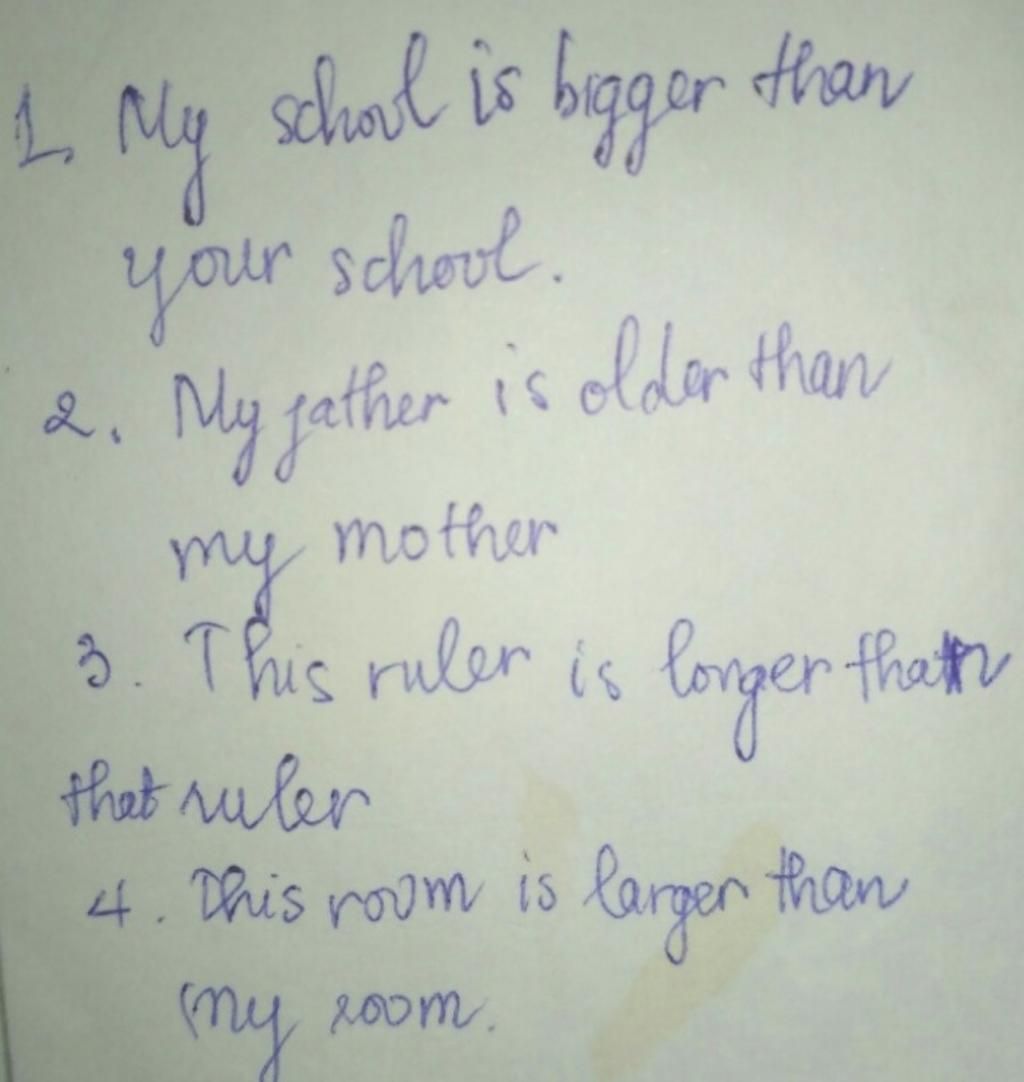 1. My school is bigger than
your school.
2. My father is older than
my mother
3. This ruler is longer than
that ruler
4. This room is larger than
my room.